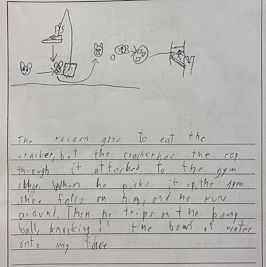 The racoon goes to eat the
cracker, but the cracker has the rop
through it attached to the gym
shoe. When he picks it up, the gym
shoe falls on him, and he runs
around. Then he trips on the pong
ball, knocking the bowl of water
onto my